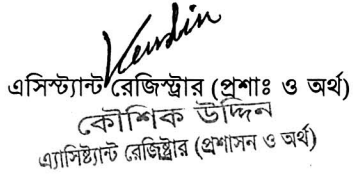 এসিস্ট্যান্ট রেজিস্ট্রার (প্রশাঃ ও অর্থ)
কৌশিক উদ্দিন
এ্যাসিষ্ট্যান্ট রেজিষ্ট্রার (প্রশাসন ও অর্থ)